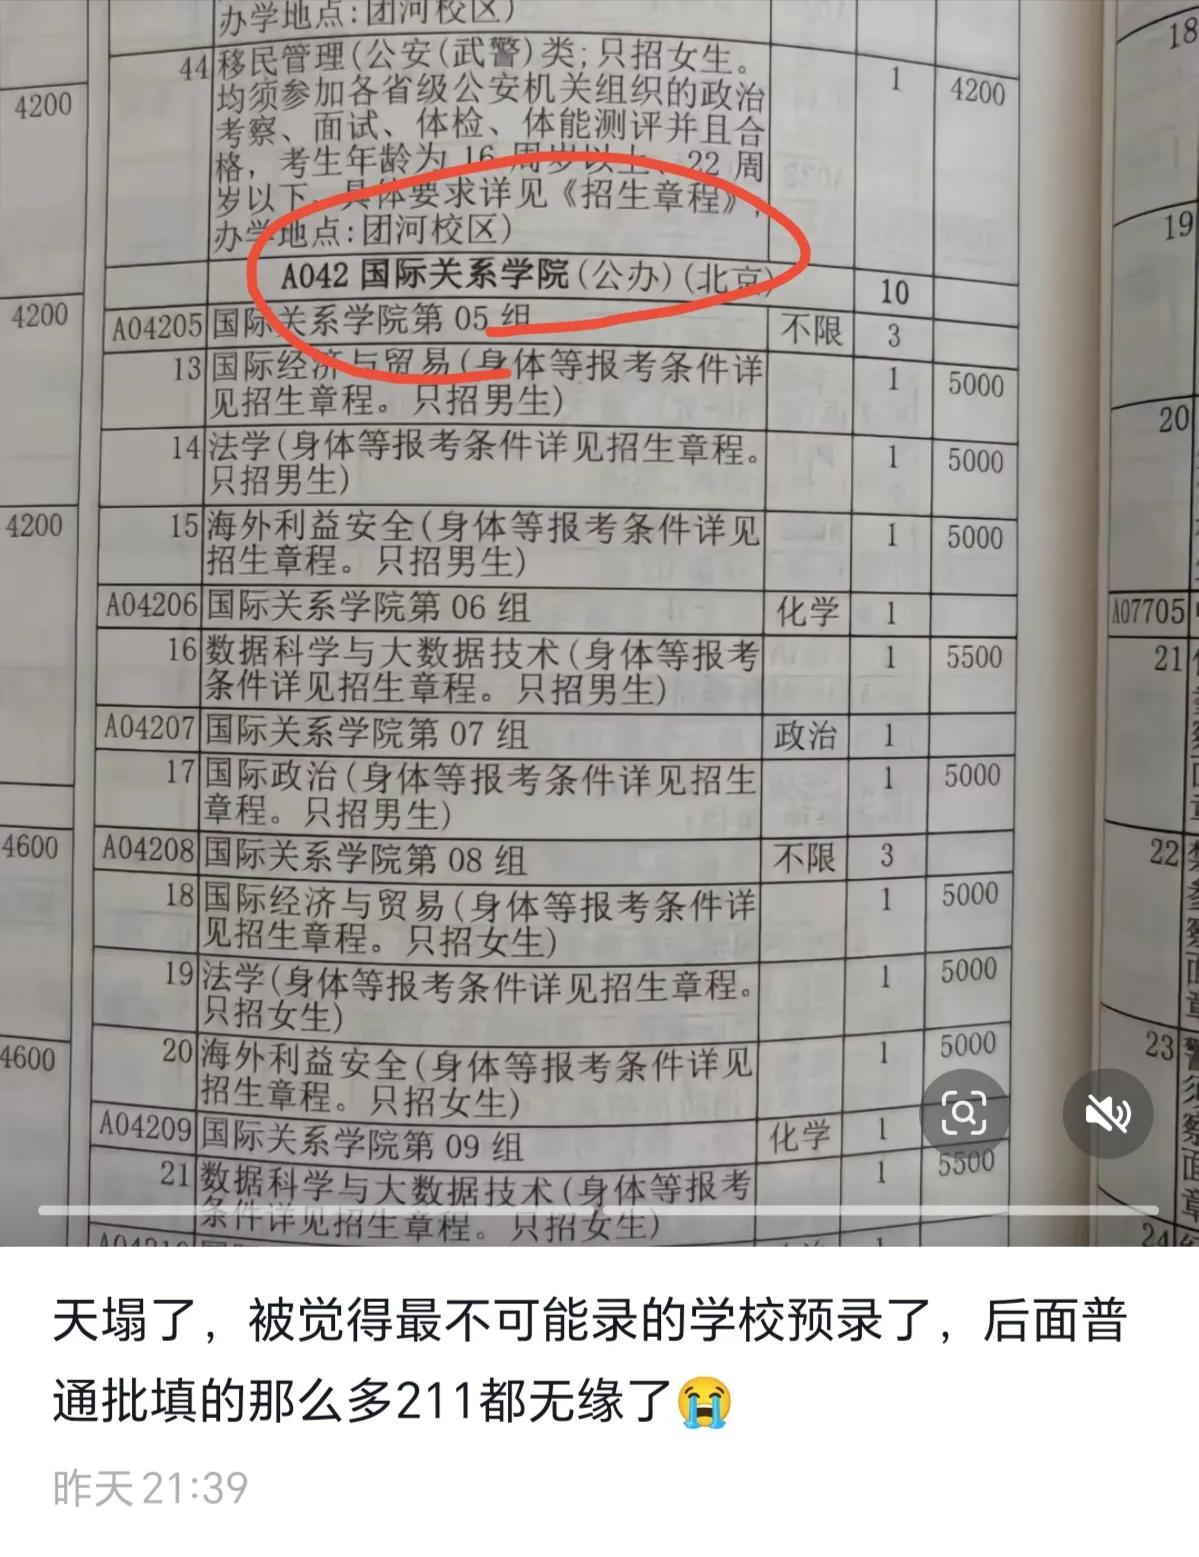 办学地点:团河校区)
44 移民管理(公安(武警)类;只招女生。 1 4200
均须参加各省级公安机关组织的政治
考察、面试、体检、体能测评并且合
格,考生年龄为 16 周岁以上、22 周
岁以下。具体要求详见《招生章程》,
办学地点:团河校区)
A042 国际关系学院(公办)(北京) 10
A04205 国际关系学院第 05 组 不限 3
13 国际经济与贸易(身体等报考条件详 1 5000
见招生章程。只招男生)
14 法学(身体等报考条件详见招生章程。 1 5000
只招男生)
15 海外利益安全(身体等报考条件详见 1 5000
招生章程。只招男生)
A04206 国际关系学院第 06 组 化学 1
16 数据科学与大数据技术(身体等报考 1 5500
条件详见招生章程。只招男生)
A04207 国际关系学院第 07 组 政治 1
17 国际政治(身体等报考条件详见招生 1 5000
章程。只招男生)
A04208 国际关系学院第 08 组 不限 3
18 国际经济与贸易(身体等报考条件详 1 5000
见招生章程。只招女生)
19 法学(身体等报考条件详见招生章程。 1 5000
只招女生)
20 海外利益安全(身体等报考条件详见 1 5000
招生章程。只招女生)
A04209 国际关系学院第 09 组 化学 1
21 数据科学与大数据技术(身体等报考 1 5500
条件详见招生章程。只招女生)
4200
4200
4200
4600
4600
18
19
20
A07705
21
22
23
24
天塌了，被觉得最不可能录的学校预录了，后面普
通批填的那么多211都无缘了😭
昨天21:39